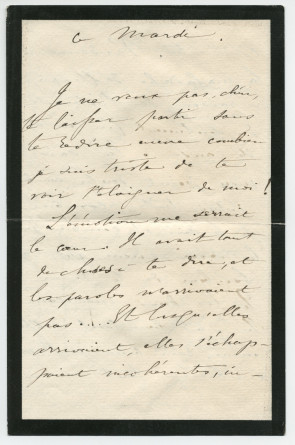 Ce Mardi.
Je ne veux pas, chère,
te laisser partir sans
te redire encore combien
je suis triste de te
voir t'éloigner de moi !
L'émotion me serrait
le cœur. Il avait tant
de choses à te dire, et
les paroles n'arrivaient
pas... Et lorsqu'elles
arrivaient, elles s'échap-
paient incohérentes, in-